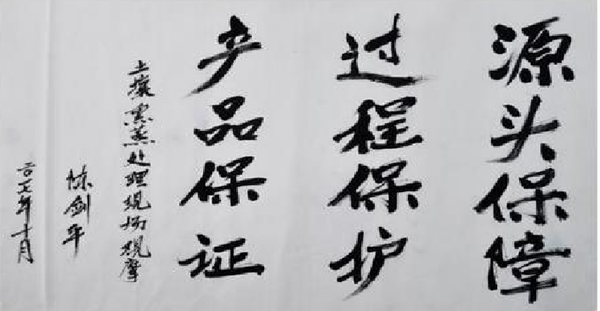 源头保障
过程保护
产品保证
土壤熏蒸处理现场观摩
陈剑平
二〇一七年十月